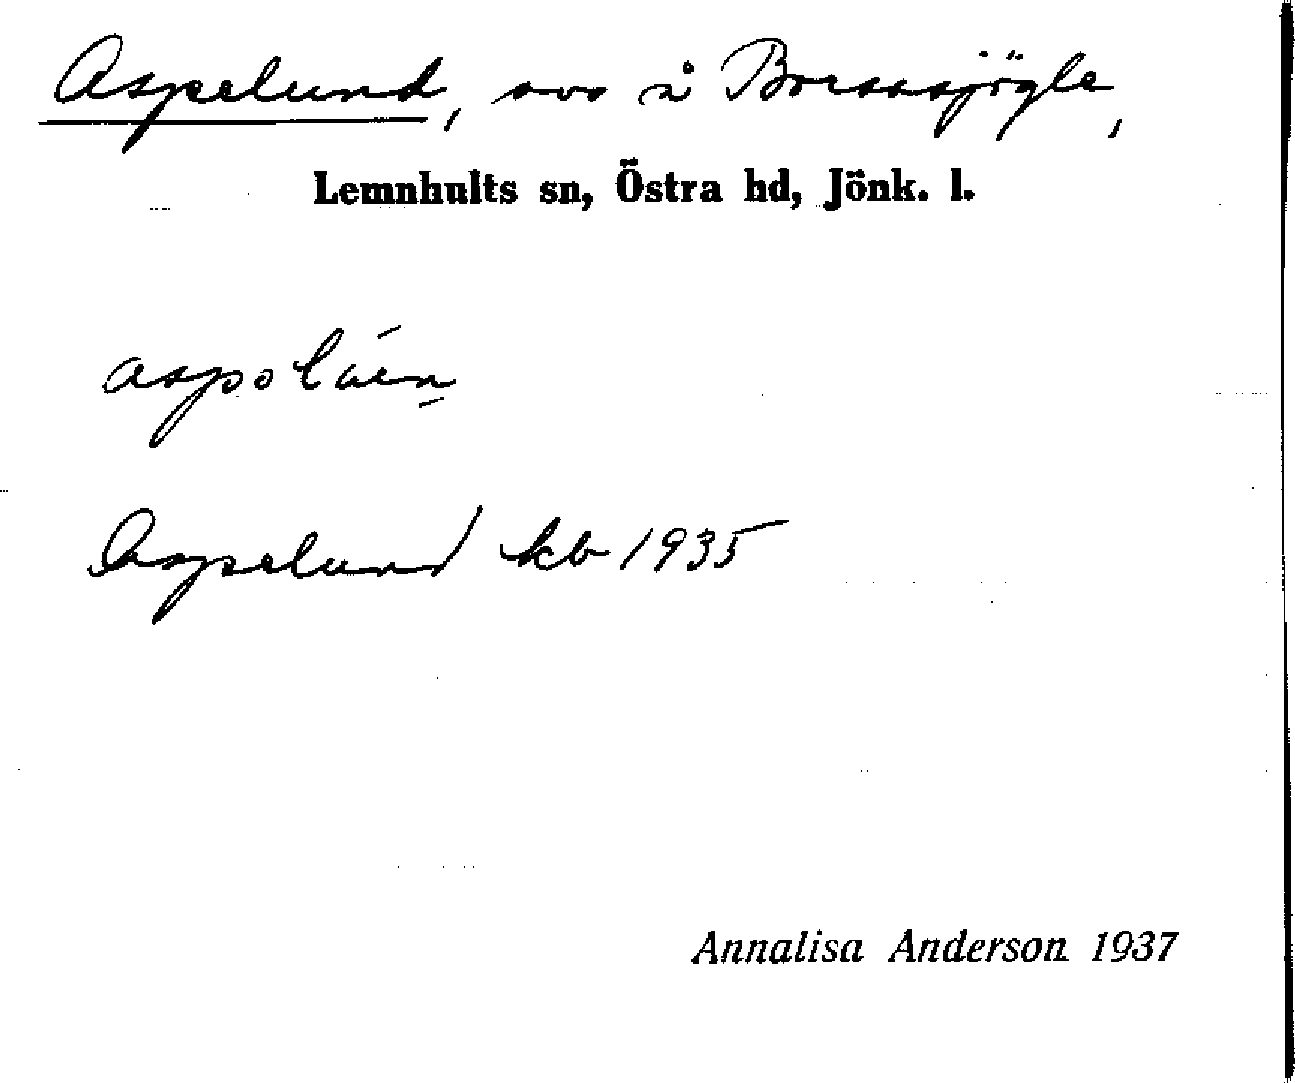 Aspelund, avs å
Lemnhults sn, Östra hd, Jönk. l.
Aspelund kb 1935
Annalisa Anderson 1937